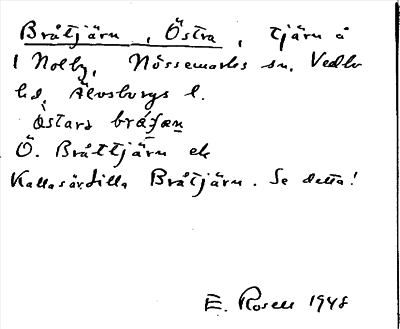 Bråtjärn, Östra, tjärn å
1 Nolby, Nössemarks sn. Vedbo
hd, Älvsborgs l.
östarə
Ö. Bråttjärn ek
Kallas är. lilla Bråtjärn. Se detta!
E. Rosell 1948